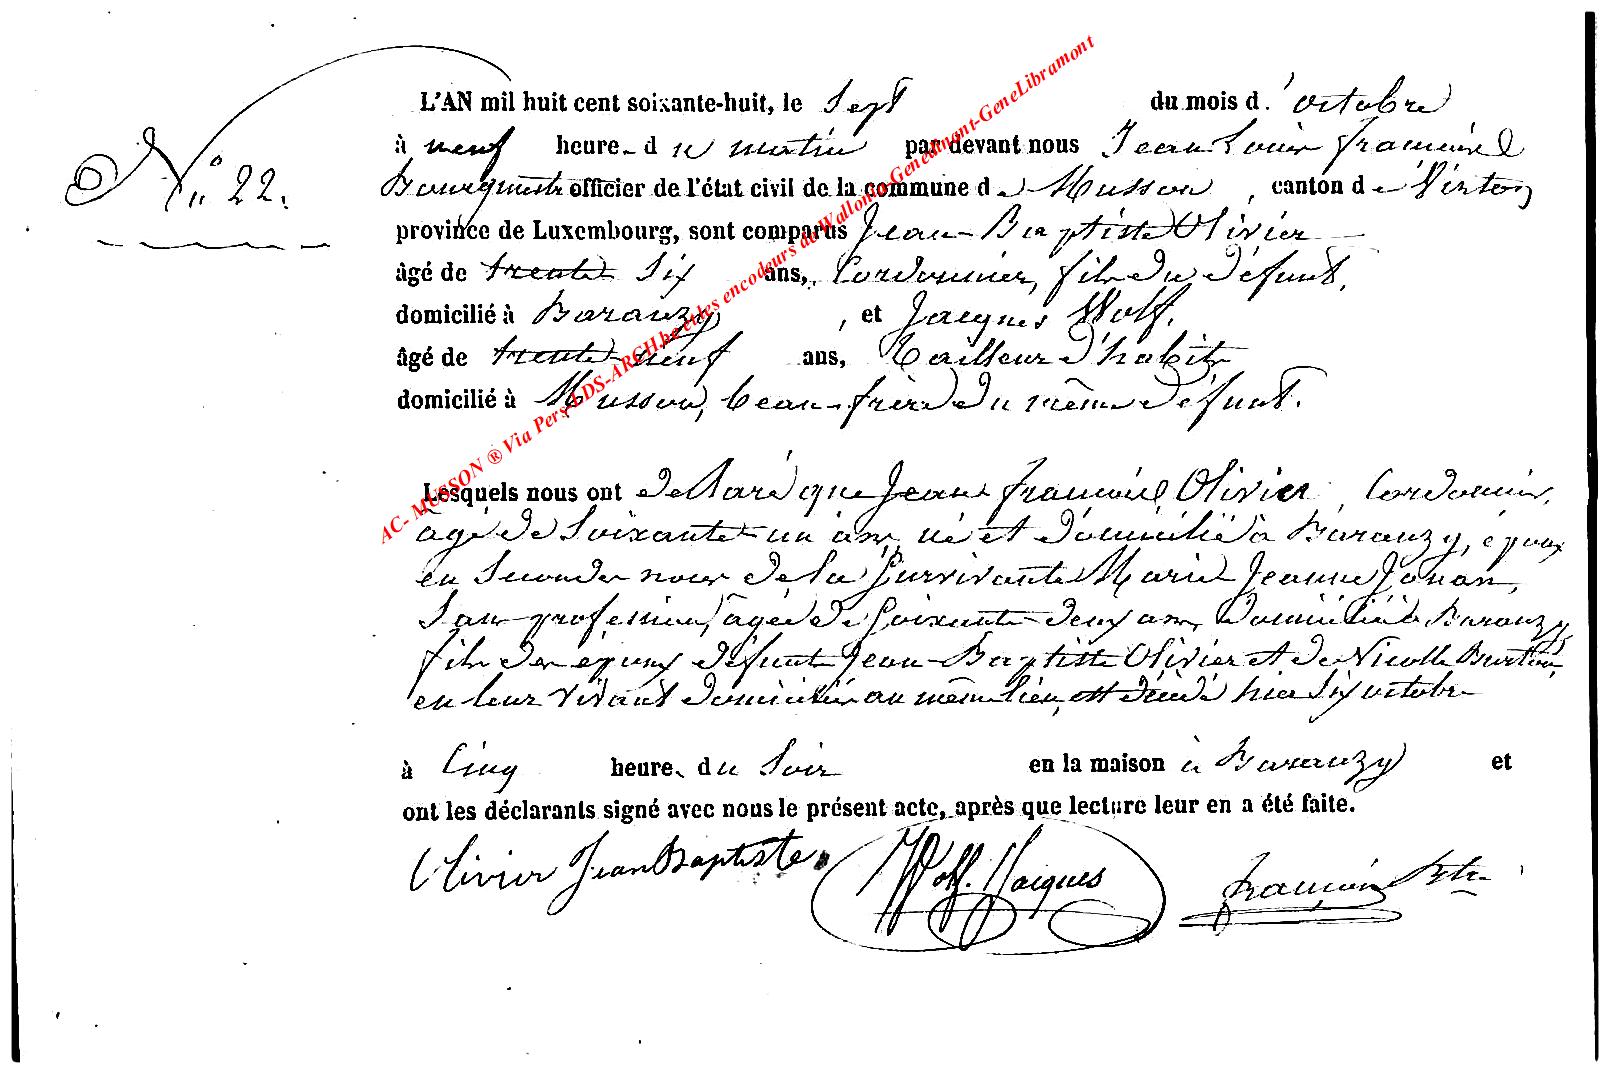 N° 22.
L'AN mil huit cent soixante-huit, le Sept du mois d' octobre
à neuf heure d u matin par devant nous Jean Louis François
Bourgmestre officier de l'état civil de la commune d e Musson, canton d e Virton
province de Luxembourg, sont comparus Jean-Baptiste Olivier
âgé de trente Six ans, Cordonnier, fils du défunt,
domicilié à Baranzy, et Jacques Wolf.
âgé de trente-neuf ans, Tailleur d'habits
domicilié à Musson, beau-frère du même défunt.
Lesquels nous ont déclaré que Jean François Olivier Cordonnier,
âgé de Soixante-un ans, né et domicilié à Baranzy, époux
en Secondes noces de la Survivante Marie Jeanne
Sans profession, âgée de Soixante deux ans, domiciliée à Baranzy
fils des époux défunts Jean-Baptiste Olivier et de Nicolle
en leur vivant domiciliés au même lieu, est décédé hier Six octobre
à Cinq heure. du Soir en la maison à Baranzy et
ont les déclarants signé avec nous le présent acte, après que lecture leur en a été faite.
Olivier Jean Baptiste Wolf. Jacques François
AC- MUSSON ® Via Pers LDS-ARCH.be et les encodeurs du Wallonia-Genedinant-GeneLibramont